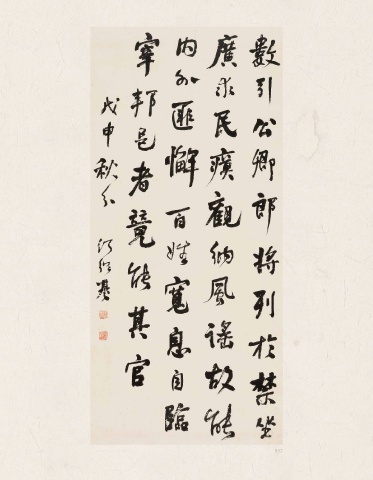 數引公卿郎將列於禁坐
廣求民瘼觀納風謠故能
內外匪懈百姓寬息自臨
宰邦邑者競能其官
戊申秋分 何紹基